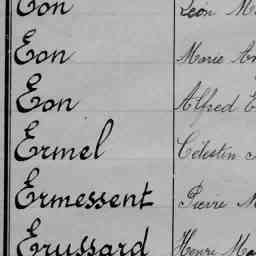 Eon Léon
Eon Marie
Eon Alfred
Ermel Célestin
Ermessent Pierre
Erussard Henri